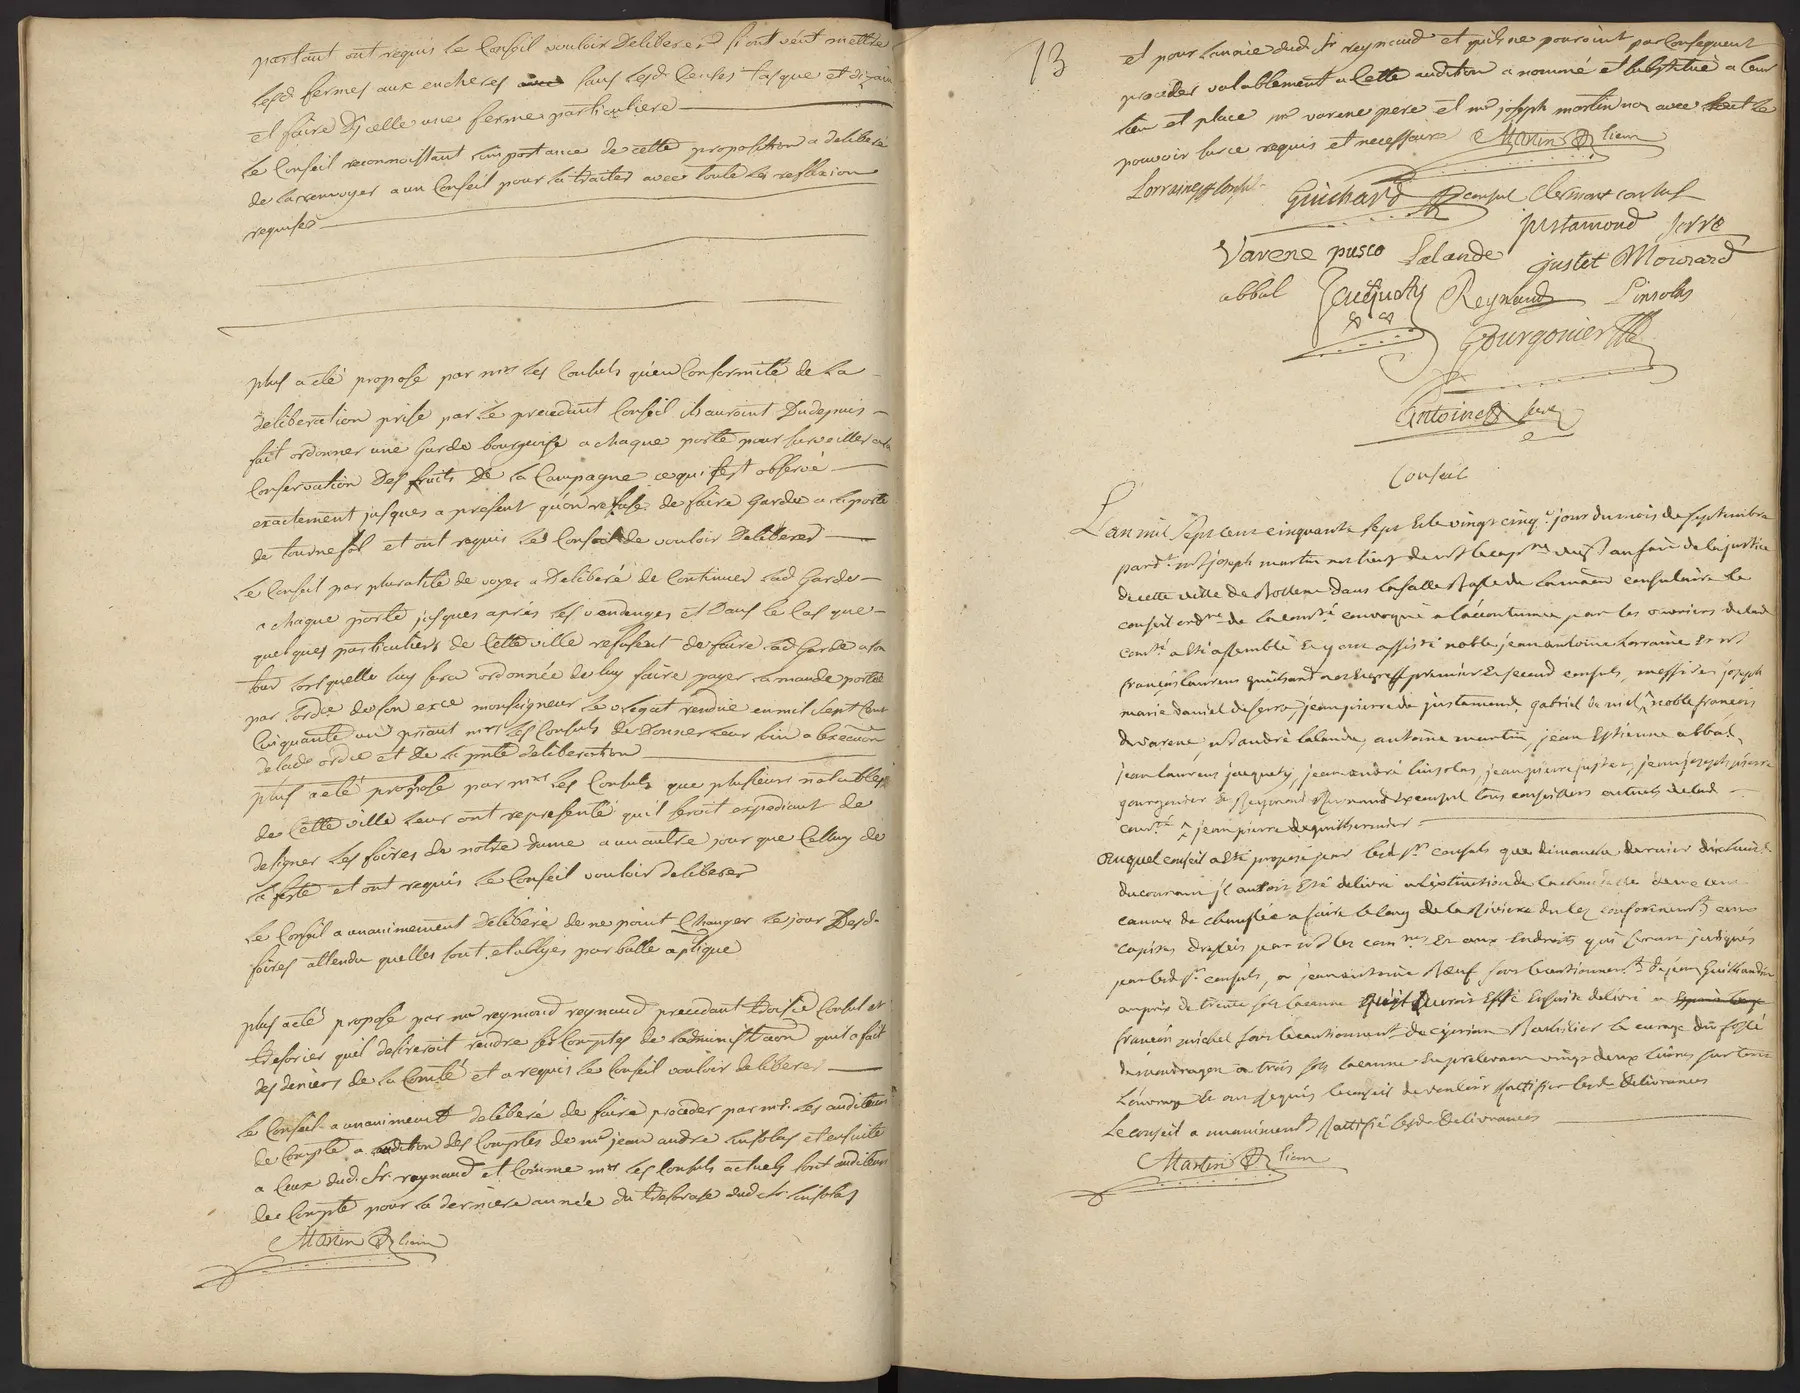 partant ont requis le Conseil vouloir Deliberer s'ils ont veut mettre
lesd. fermes aux encheres avec sans lesd. Censes tasque et dizain
et faire d'jcelle une ferme particuliere
Le Conseil reconnoissant l'importance de cette proposition a deliberé
de la renvoyer a un Conseil pour la traiter avec toute les reflexion
requises
plus a eté proposé par mrs les Consuls qu'en Conformité de La
deliberation prise par le precedant Conseil ils auroint Dudepuis
fait ordonner une Garde bourgeoise a chaque porte pour surveiller a la
Conservation Des fruits De la Campagne ce qui s'est observé
exactement jusques a present qu'on refuse de faire Garde a la porte
de tournefol et ont requis le Conseil de vouloir Deliberer
Le Conseil par pluralité de voyes a Deliberé de Continuer lad Garde
a chaque porte jusques aprés les vendenges et Dans le Cas que
quelques particuliers de Cette ville refusent de faire lad Garde a son
tour lorsquelle luy sera ordonnée de luy faire payer lamande portée
par l'ordce de son exce monseigneur le vilegat rendue en mil sept Cent
Cinquante un priant mrs les Consuls de Donner leur soin a l'execution
de lade ordce et De la pnte deliberation
plus a eté proposé par mrs les Consuls que plusieurs notables
de Cette ville leur ont representé qu'il seroit expediant de
designer les foires de notre dame a un autre jour que Celluy de
la feste et ont requis le Conseil vouloir deliberer
Le Conseil a unanimement Deliberé de ne point Changer le jour Desd.
foires attendu quelles sont etablyes par bulle aplique
plus a eté proposé par mr reymond reynaud precedant troisie Consul et
tresorier qu'il desireroit rendre ses Comptes de l'administraon qu'il a fait
des deniers de la Comté et a requis le Conseil vouloir deliberer
Le Conseil a unanimement deliberé de faire proceder par mrs. les auditeurs
de Compte a audition des Comptes de mr jean andre linsolas et ensuite
a Ceux dud. Sr. reynaud et Comme mrs les Consuls actuels sont auditeurs
de Compte pour la derniere année du tresorase dud Sr linsolas
Martin lieun
13
et pour lannée dud. Sr reynaud et qu'ils ne pouroint par Consequent
proceder valablement a Cette audition a nommé et substitué a leur
lieu et place mr varene pere et mr joseph martin nore avec tout le
pouvoir sur ce requis et necessaire Martin lieun
Lorraine Consul Guichard consul Clermont consul
justamond Serre
Varene pusco Lalande justet Moirard
abbal Jacquety Reynaud Linsolas
Gourgonier
Antoine
Conseil
L'an mil sept cent cinquante sept et le vingt cinqe jour du mois de septembre
pardt. mr joseph martin nore lieut de mr le capne viguier au fait de la justice
de cette ville de Bollene dans la salle basse de la maison consulaire le
conseil ordre de la comté convoqué a l'accoutumée par les ouvriers de lad
comté a eté assemblé et y ont assisté noble jean antoine Lorraine et mr
françois laurens guichard nore et greff premier et second consuls, messires joseph
marie daniel de serre, jean pierre de justamond, gabriel de niel, noble francois
de varene, mr andré lalande, antoine martin, jean Estienne abbal,
jean laurens jacquety, jean andré linsolas, jean pierre justet, jean joseph pierre
gourgonier et Reymond Reynaud Exconsul tous conseillers actuels de lad
comté. jean pierre de guilhermier
Auquel conseil a eté proposé par lesd srs consuls que dimanche dernier dixhuit
du courant jl auroit Eté delivré a l'extinction de la chandelle
cannes de chaussée a faire le long de la Riviere du lez conformement aux
capites dressés par mr les comres Et aux Endroits qui seront jndiqués
par lesd srs consuls, a jean antoine Bœuf sous le cautionnemt de jean Guilhaudin
au prix de trente sols la canne quil auroit Eté Ensuite delivré a
françois michel sous le cautionnement de ciprien le curage du fossé
de mondragon a trois sols la canne En prelevant vingt deux livres sur tout
l'ouvrage Et ont requis le conseil de vouloir Rattifier lesde delivrances
Le conseil a unanimemt Rattifié lesde delivrances
Martin lieun